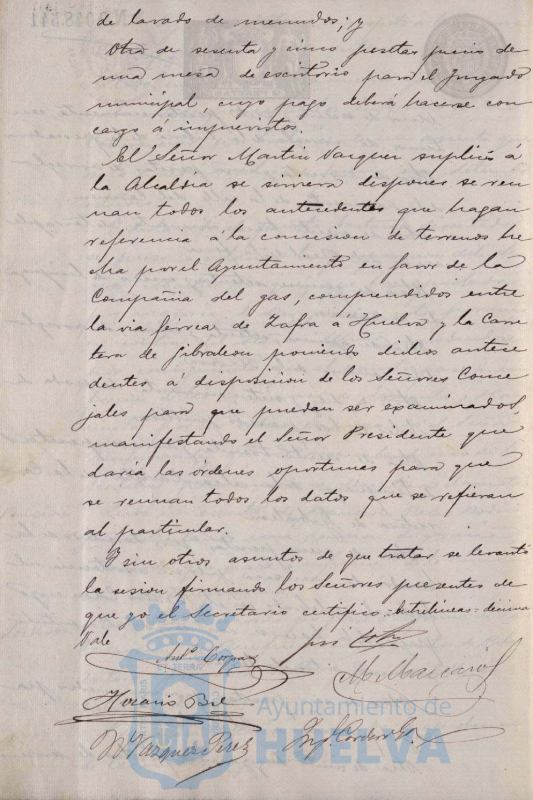 de lavado de menudos; y
Otra de sesenta y cinco pesetas precio de
una mesa de escritorio para el Juzgado
municipal, cuyo pago deberá hacerse con
cargo á imprevistos.
El Señor Martin Vazquez suplicó á
la Alcaldía se sirviera dispones se reu
nan todos los antecedentes que hagan
referencia á la concesion de terrenos he
cha por el Ayuntamiento en favor de la
Compañia del gas, comprendidos entre
la via férrea de Zafra á Huelva y la Carre
tera de Gibraleon poniendo dichos antece
dentes á disposicion de los Señores Conce
jales para que puedan ser examinados,
manifestando el Señor Presidente que
daría las órdenes oportunas para que
se reunan todos los datos que se refieran
al particular.
Y sin otros asuntos de que tratar se levantó
la sesion firmando los Señores presentes de
que yo el Secretario certifico = Entrelineas = decima
Vale
Horacio Bel
Vazquez Perez
Ayuntamiento de
HUELVA